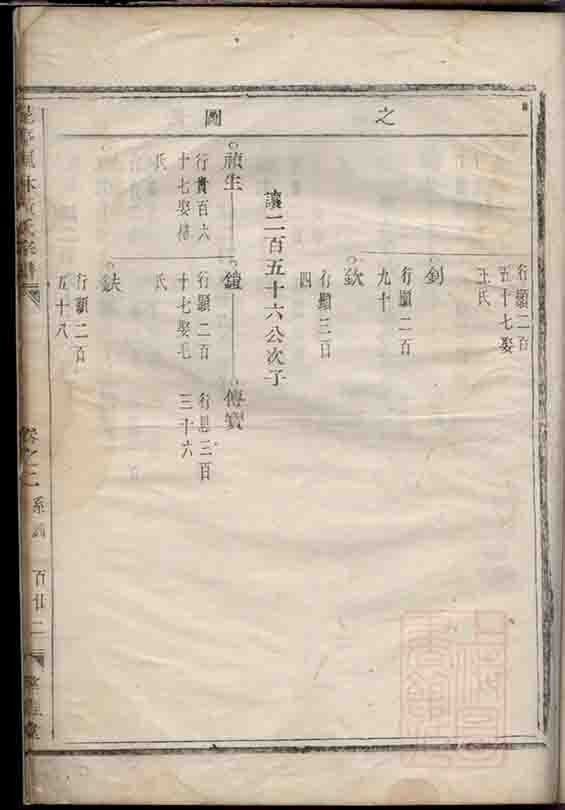 之圖
行顯二百
五十七娶
王氏
釗
行顯二百
九十
欽
行顯三百
四
讓二百五十六公次子
禎生
行貴百六
十七娶
氏
鐘
行顯二百
十七娶毛
氏
傳寶
行思三百
三十六
鈌
行顯二百
五十八
宗譜
卷之二
系圖
百廿二